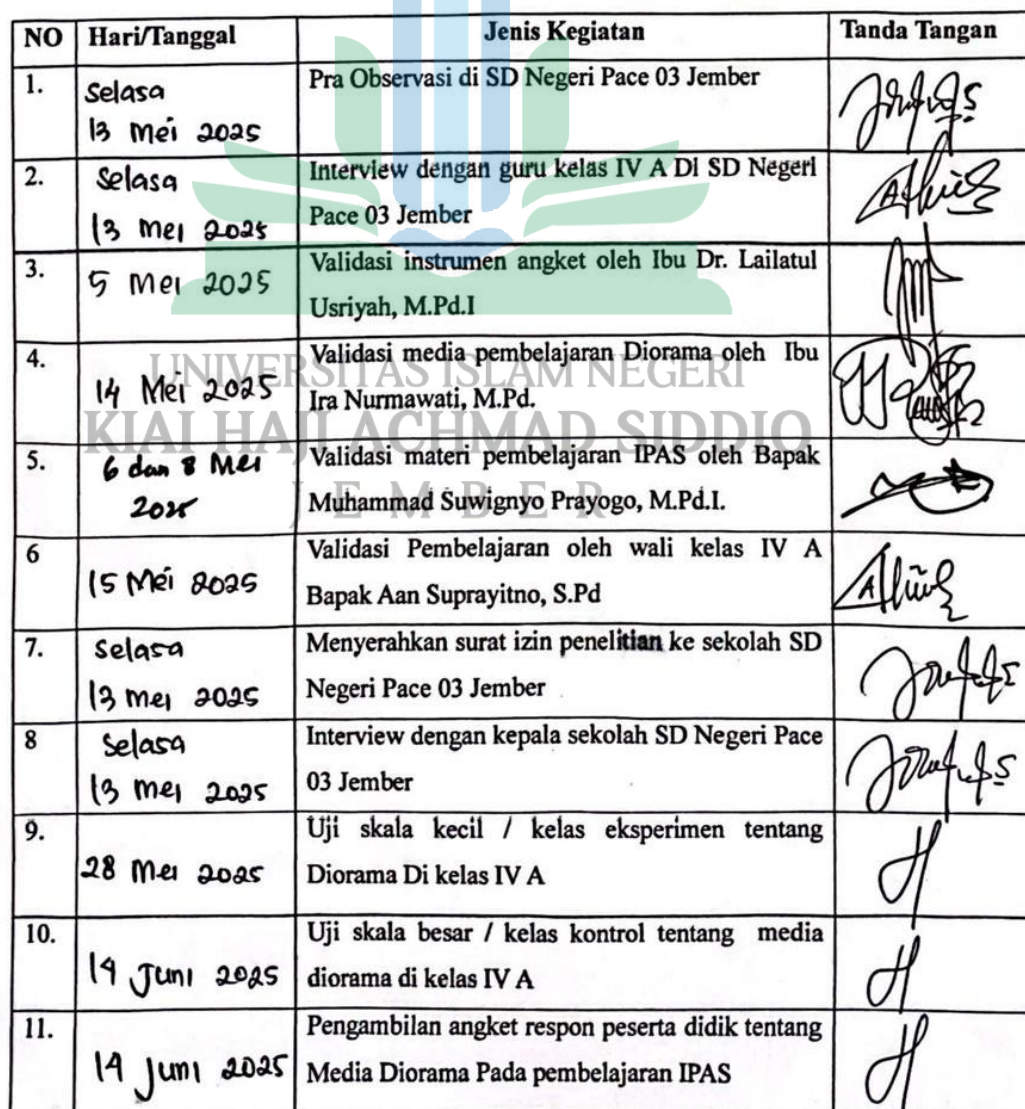 NO Hari/Tanggal Jenis Kegiatan Tanda Tangan
1. Selasa
13 Mei 2025
Pra Observasi di SD Negeri Pace 03 Jember
2. Selasa
13 Mei 2025
Interview dengan guru kelas IV A DI SD Negeri
Pace 03 Jember
3. 5 Mei 2025
Validasi instrumen angket oleh Ibu Dr. Lailatul
Usriyah, M.Pd.I
4. 14 Mei 2025
Validasi media pembelajaran Diorama oleh Ibu
Ira Nurmawati, M.Pd.
5. 6 dan 8 Mei
2025
Validasi materi pembelajaran IPAS oleh Bapak
Muhammad Suwignyo Prayogo, M.Pd.I.
6 15 Mei 2025
Validasi Pembelajaran oleh wali kelas IV A
Bapak Aan Suprayitno, S.Pd
7. Selasa
13 Mei 2025
Menyerahkan surat izin penelitian ke sekolah SD
Negeri Pace 03 Jember
8 Selasa
13 Mei 2025
Interview dengan kepala sekolah SD Negeri Pace
03 Jember
9. 28 Mei 2025
Uji skala kecil / kelas eksperimen tentang
Diorama Di kelas IV A
10. 14 Juni 2025
Uji skala besar / kelas kontrol tentang media
diorama di kelas IV A
11. 14 Juni 2025
Pengambilan angket respon peserta didik tentang
Media Diorama Pada pembelajaran IPAS
UNIVERSITAS ISLAM NEGERI
KIAI HAJI ACHMAD SIDDIQ
JEMBER